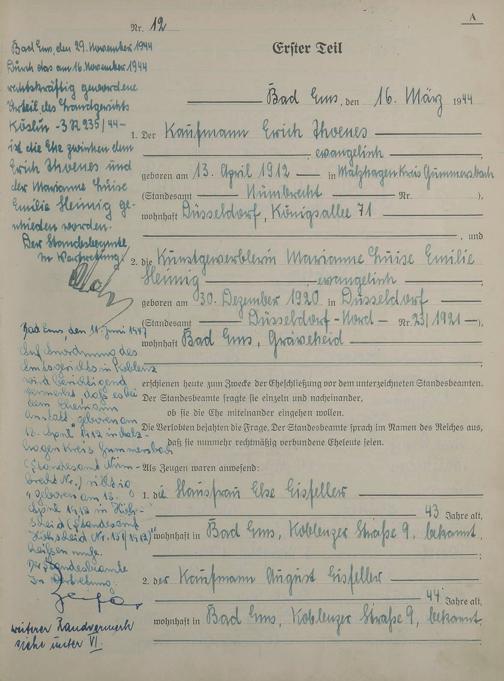 A
Nr. 12
Erster Teil
Bad Ems, den 16. März 1944
1. Der Kaufmann Erich Thoenes
, evangelisch,
geboren am 13. April 1912 in Kreis Gummersbach
(Standesamt Nümbrecht Nr. ),
wohnhaft Düsseldorf, Königsallee 71
, und
2. die Kunstgewerblerin Marianne Luise Emilie
, evangelisch,
geboren am 30. Dezember 1920 in Düsseldorf
(Standesamt Düsseldorf-Nord Nr. 23/1921),
wohnhaft Bad Ems,
erschienen heute zum Zwecke der Eheschließung vor dem unterzeichneten Standesbeamten.
Der Standesbeamte fragte sie einzeln und nacheinander,
ob sie die Ehe miteinander eingehen wollen.
Die Verlobten bejahten die Frage. Der Standesbeamte sprach im Namen des Reiches aus,
daß sie nunmehr rechtmäßig verbundene Eheleute seien.
Als Zeugen waren anwesend:
1. die Hausfrau Else Eisfeller
43 Jahre alt,
wohnhaft in Bad Ems, Koblenzer Straße 9, bekannt
2. der Kaufmann August Eisfeller
44 Jahre alt,
wohnhaft in Bad Ems, Koblenzer Straße 9, bekannt
Bad Ems, den 29. November 1944
Durch das am 16. November 1944
rechtskräftig gewordene
Urteil des Landgerichts
Köslin - 3 R 235/44 -
ist die Ehe zwischen dem
Erich Thoenes und
der Marianne Luise
Emilie ge-
schieden worden.
Der Standesbeamte
In Vertretung
Bad Ems, den 11. Juni 1947
Auf Anordnung des
Amtsgerichts in Koblenz
wird berichtigend
vermerkt, daß es bei
dem Ehemann
anstatt „geboren am
13. April 1912 in
Kreis Gummersbach
(Standesamt Nüm-
brecht Nr. )" richtig
„geboren am 13.
April 1912 in Höh-
scheid (Standesamt
Höhscheid Nr. 151/1912)"
heißen muß.
Der Standesbeamte
In Vertretung
weiterer Randvermerk
siehe unter VI.